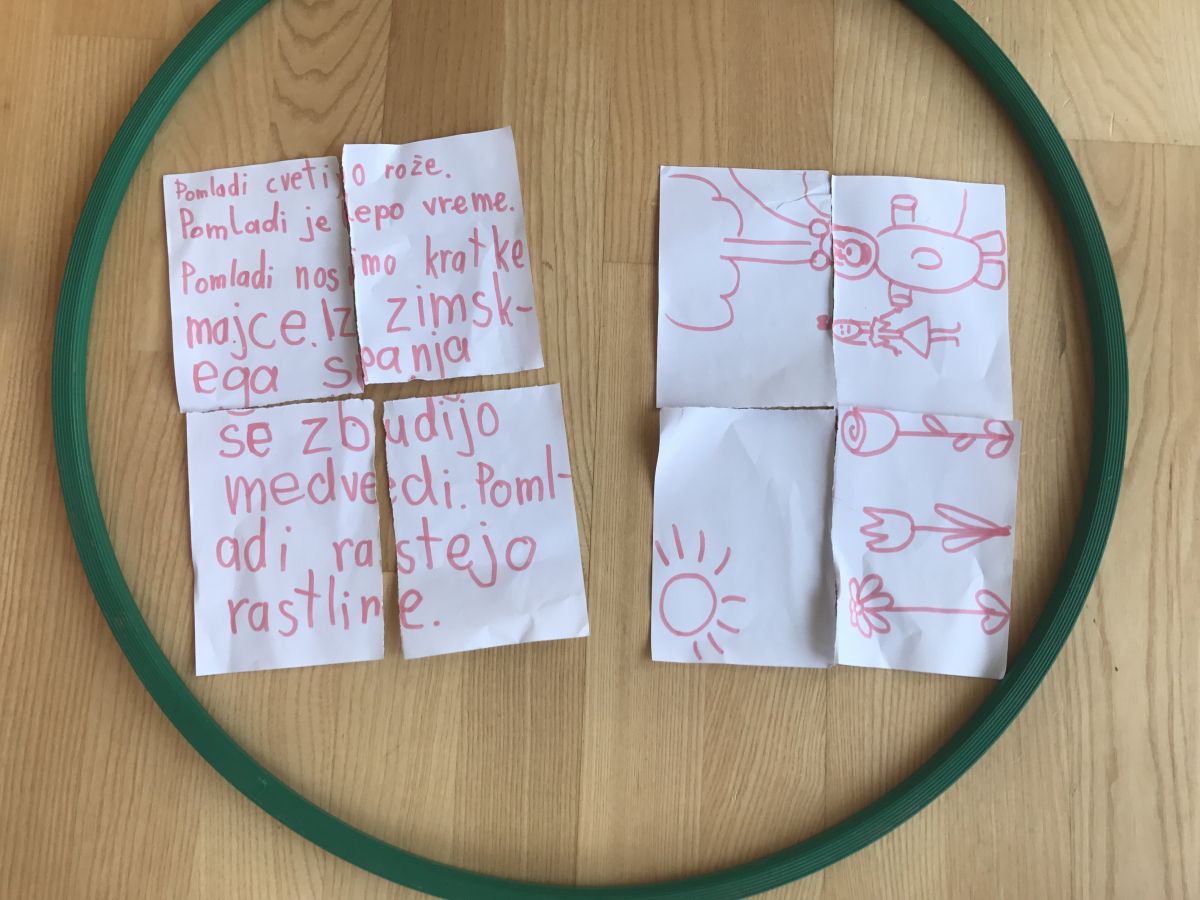 Pomladi cvetijo rože.
Pomladi je lepo vreme.
Pomladi nosimo kratke
majce. Iz zimsk-
ega spanja
še zbudijo
medvedi. Poml-
adi rastejo
rastline.